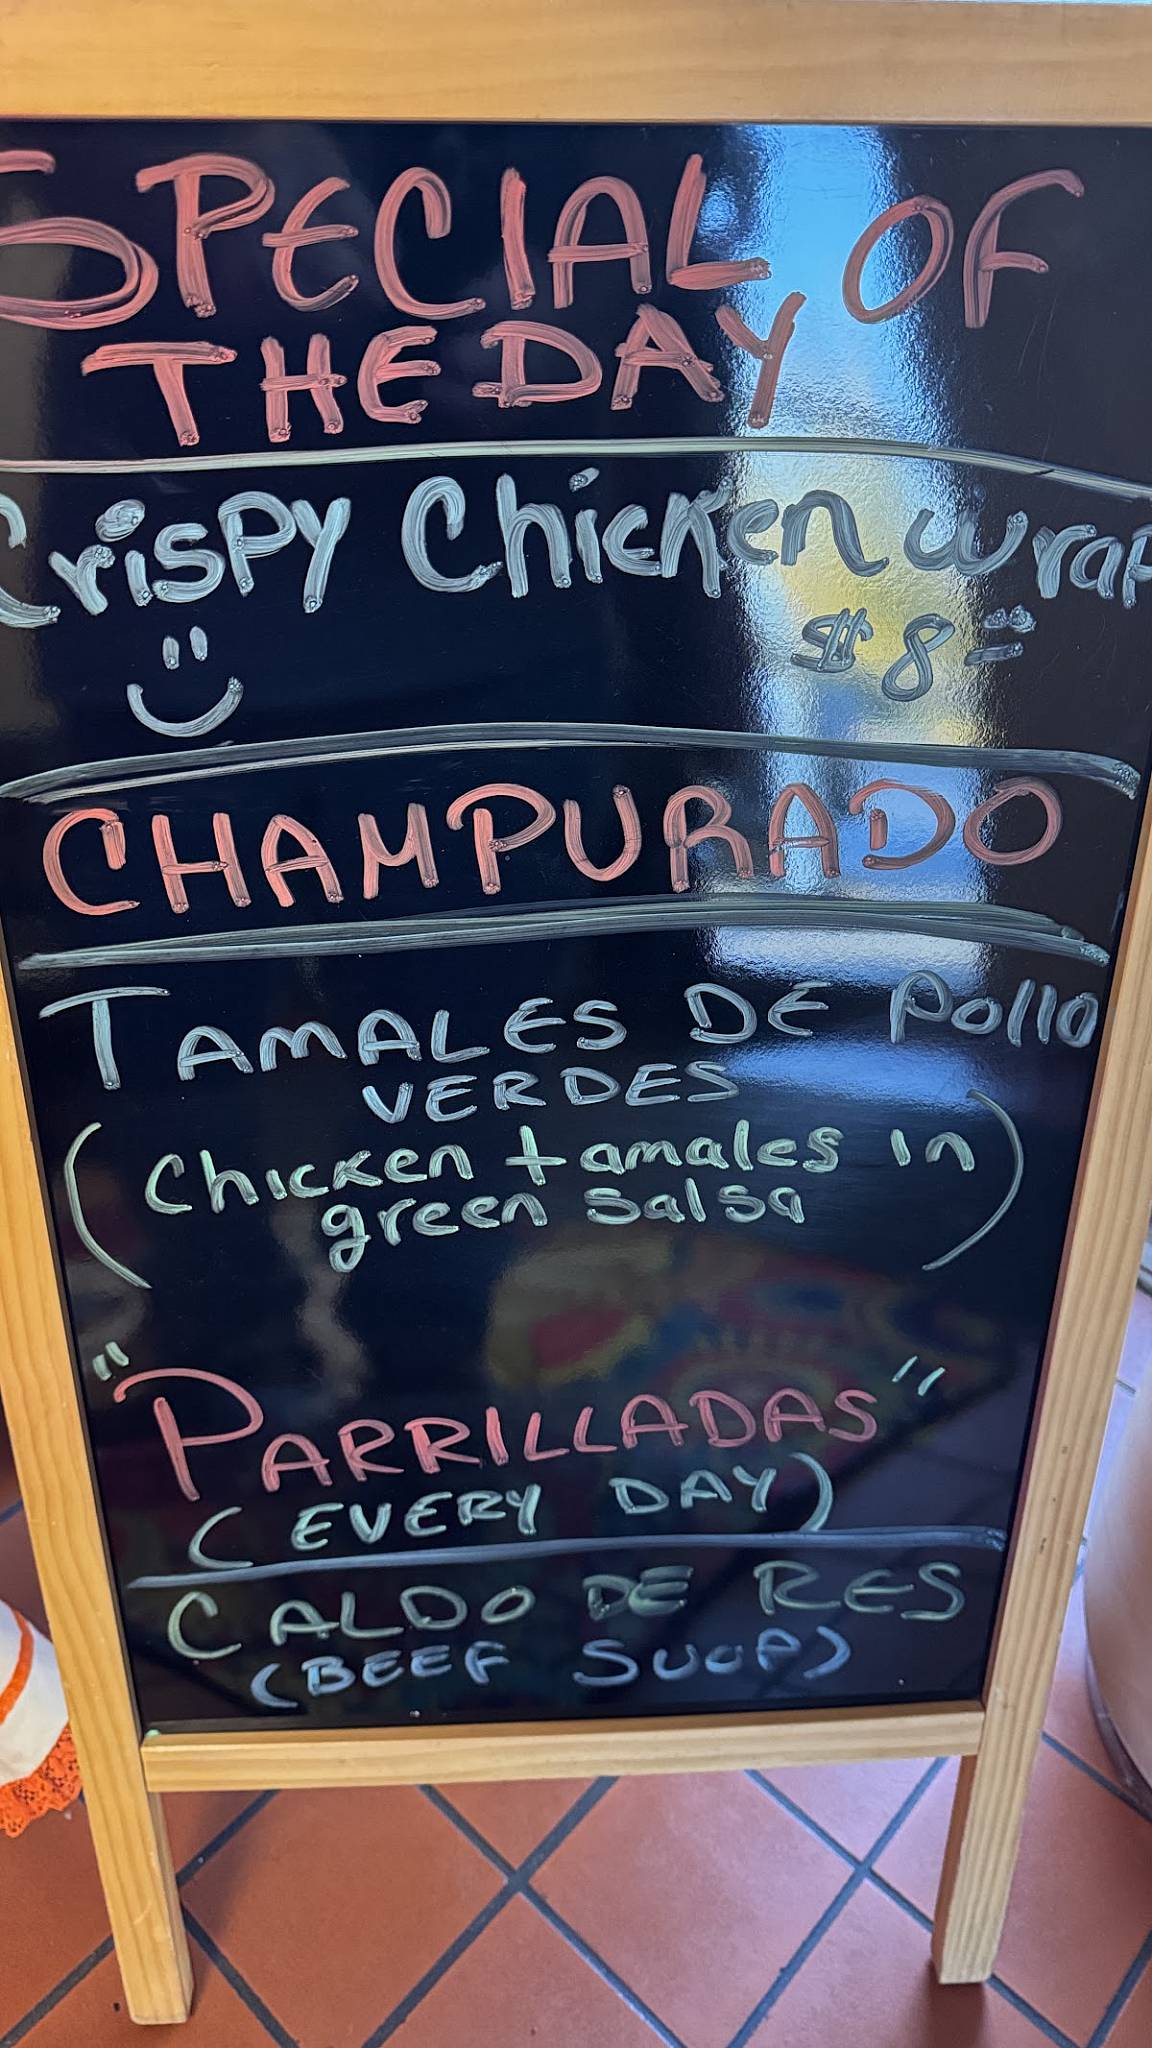 SPECIAL OF
THE DAY
Crispy Chicken wrap
$8=
CHAMPURADO
TAMALES DE Pollo
VERDES
(Chicken tamales in
green salsa)
"PARRILLADAS"
(EVERY DAY)
CALDO DE RES
(BEEF SUOP)